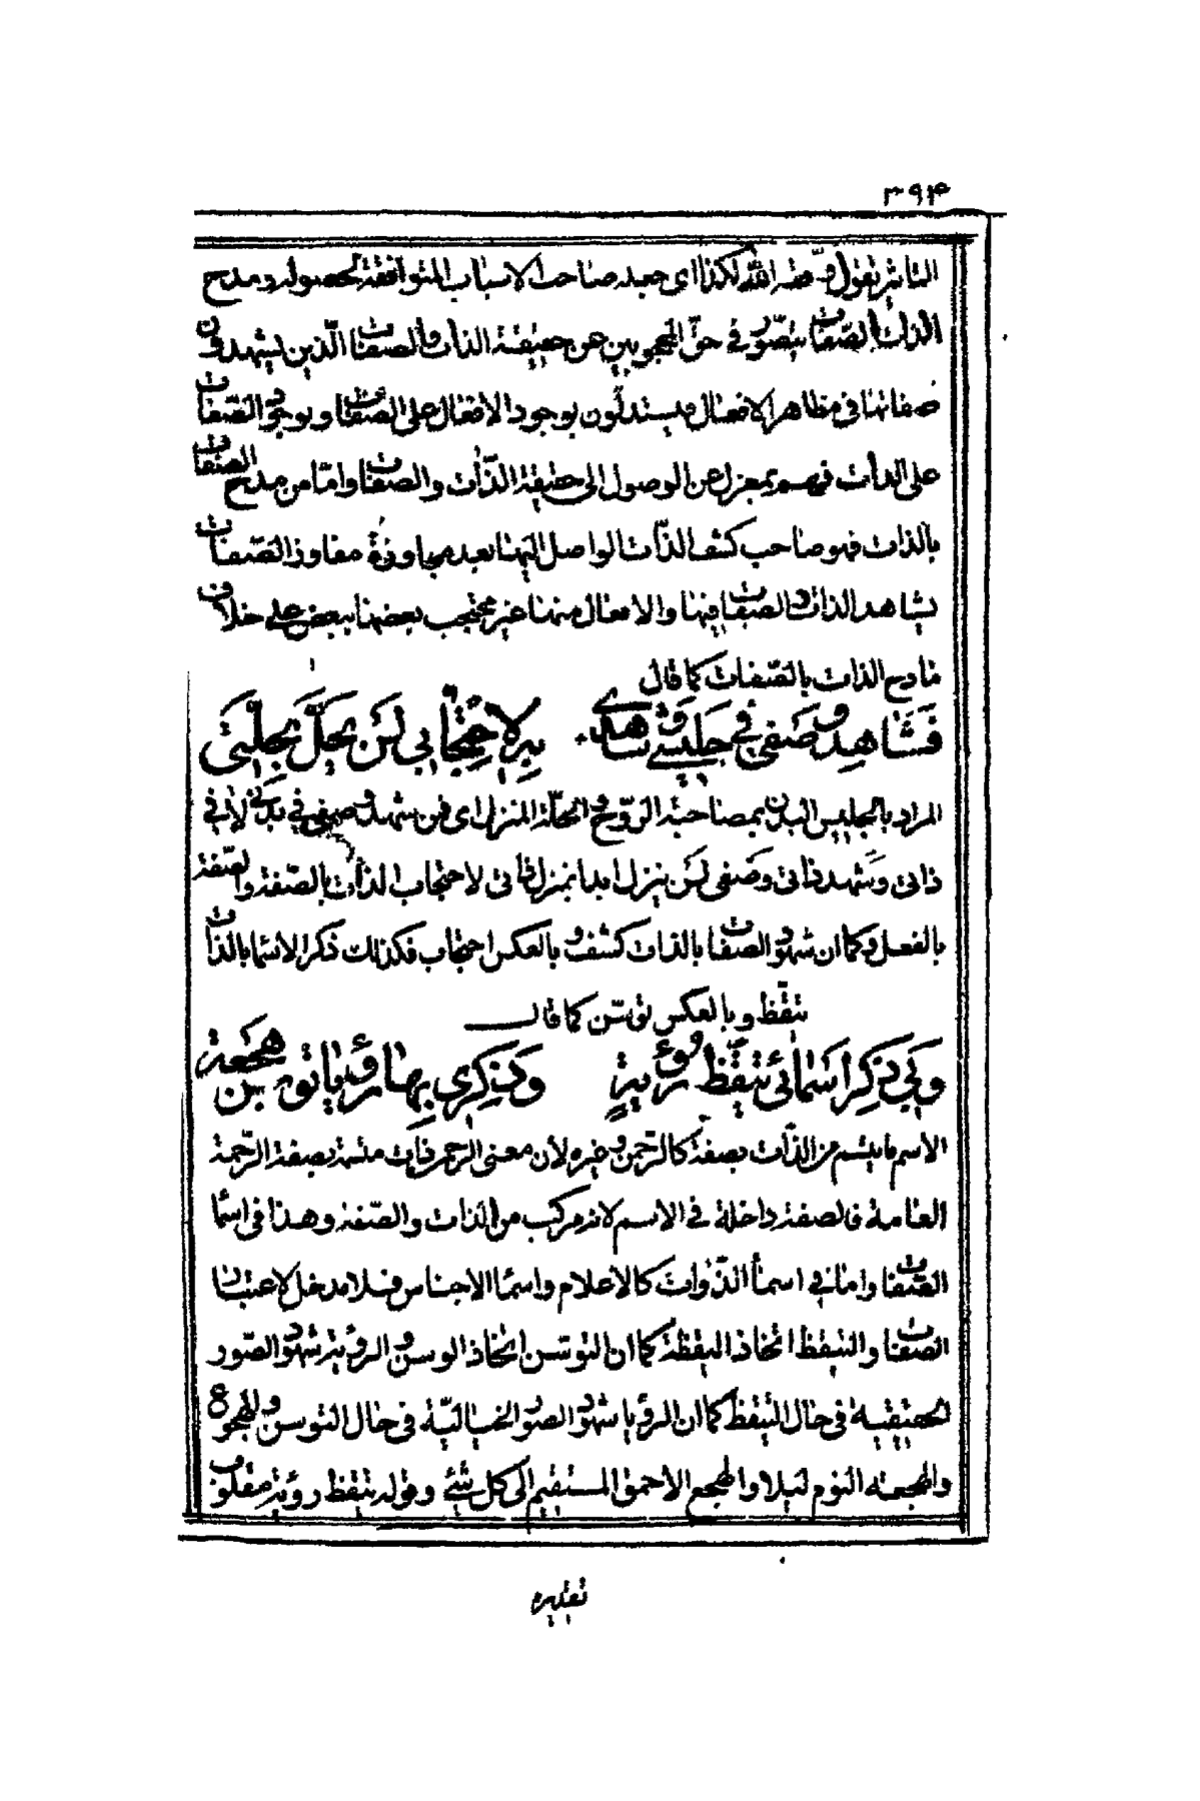 ۳۹۴
التاثير تقول وفقه الله لكذا اى جعله صاحب الاسباب المتوافقة لحصوله ومدح
الذات بالصفات يتصوّر فى حقّ المحجوبين عن حقيقة الذات والصفات الّذين يشهدون
صفاتها فى مظاهر الافعال ويستدلّون بوجود الافعال على الصّفات وبوجود الصّفات
على الذات فهم بمعزل عن الوصول الى حقيقة الذّات والصفات وامّا من مدح الصفات
بالذات فهو صاحب كشف الذّات الواصل اليها بعد مجاوزة مفاوز الصّفات
يشاهد الذات والصفات فيها والافعال منها غير محتجب بعضها ببعض على خلاف
مادح الذات بالصّفات كما قال
فَشَاهِدُ وصَفى فى جَليسى وشَاهدى بِهِ لاِحْتِجَابى لَنْ يَحِلَّ بِحِلَّتى
المراد بالجليس البدن بمصاحبة الرّوح والحلّة المنزل اى فمن شهد وصفى فى بدنى لا فى
ذاتى وشَهد ذاتى وصَفى لَن ينزل ابدا بمنزل ذاتى لاحتجاب الذات بالصّفة والصّفة
بالفعل وكما ان شهود الصفات بالذات كشف وبالعكس احتجاب فكذلك ذكر الاسما بالذات
تيقّظ وبالعكس توسّن كما قال
وَبى ذِكرُ اسَمائى تيقّظ رُؤيةٍ وَذِكرى بِهَا رُؤيا توسّن هَجعَةِ
الاسم ما يتسم عن الذّات بصفة كالرّحمن وغيره لان معنى الرحمن ذات متسمة بصفة الرّحمة
العامة فالصفة داخلة فى الاسم لانه مركب من الذات والصّفة وهذا فى اسما
الصّفات واما فى اسمأ الذّوات كالاعلام واسما الاجناس فلا مدخل لاعتبار
الصفات والتيقظ اتخاذ اليقظة كما ان التوسّن اتخاذ الوسن والرؤية شهود الصّور
الحقيقية فى حال التيقظ كما ان الرؤيا شهود الصور الخياليّة فى حال التوسن والهجوع
والهجعة النوم ليلا والهجع الاحمق المستقيم الى كل شئ وقوله تيقظ رؤية مقلوب
تقديره